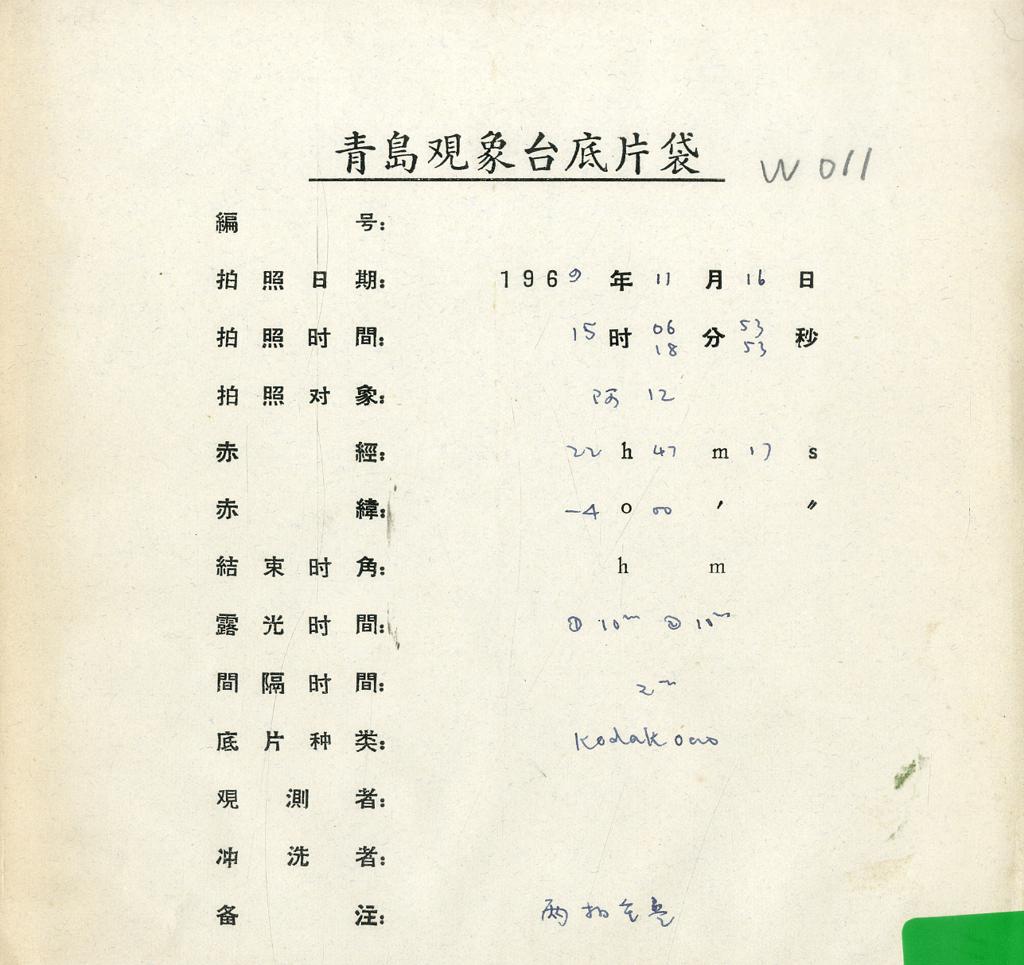 青島观象台底片袋 W011
編号:
拍照日期: 1969年11月16日
拍照时間: 15时06分53秒
18 53
拍照对象: 阿12
赤經: 22h47m17s
赤緯: -4o00′″
結束时角: h m
露光时間: ①10m ②10m
間隔时間: 2m
底片种类: Kodak oao
观測者:
冲洗者:
备注: 两拍